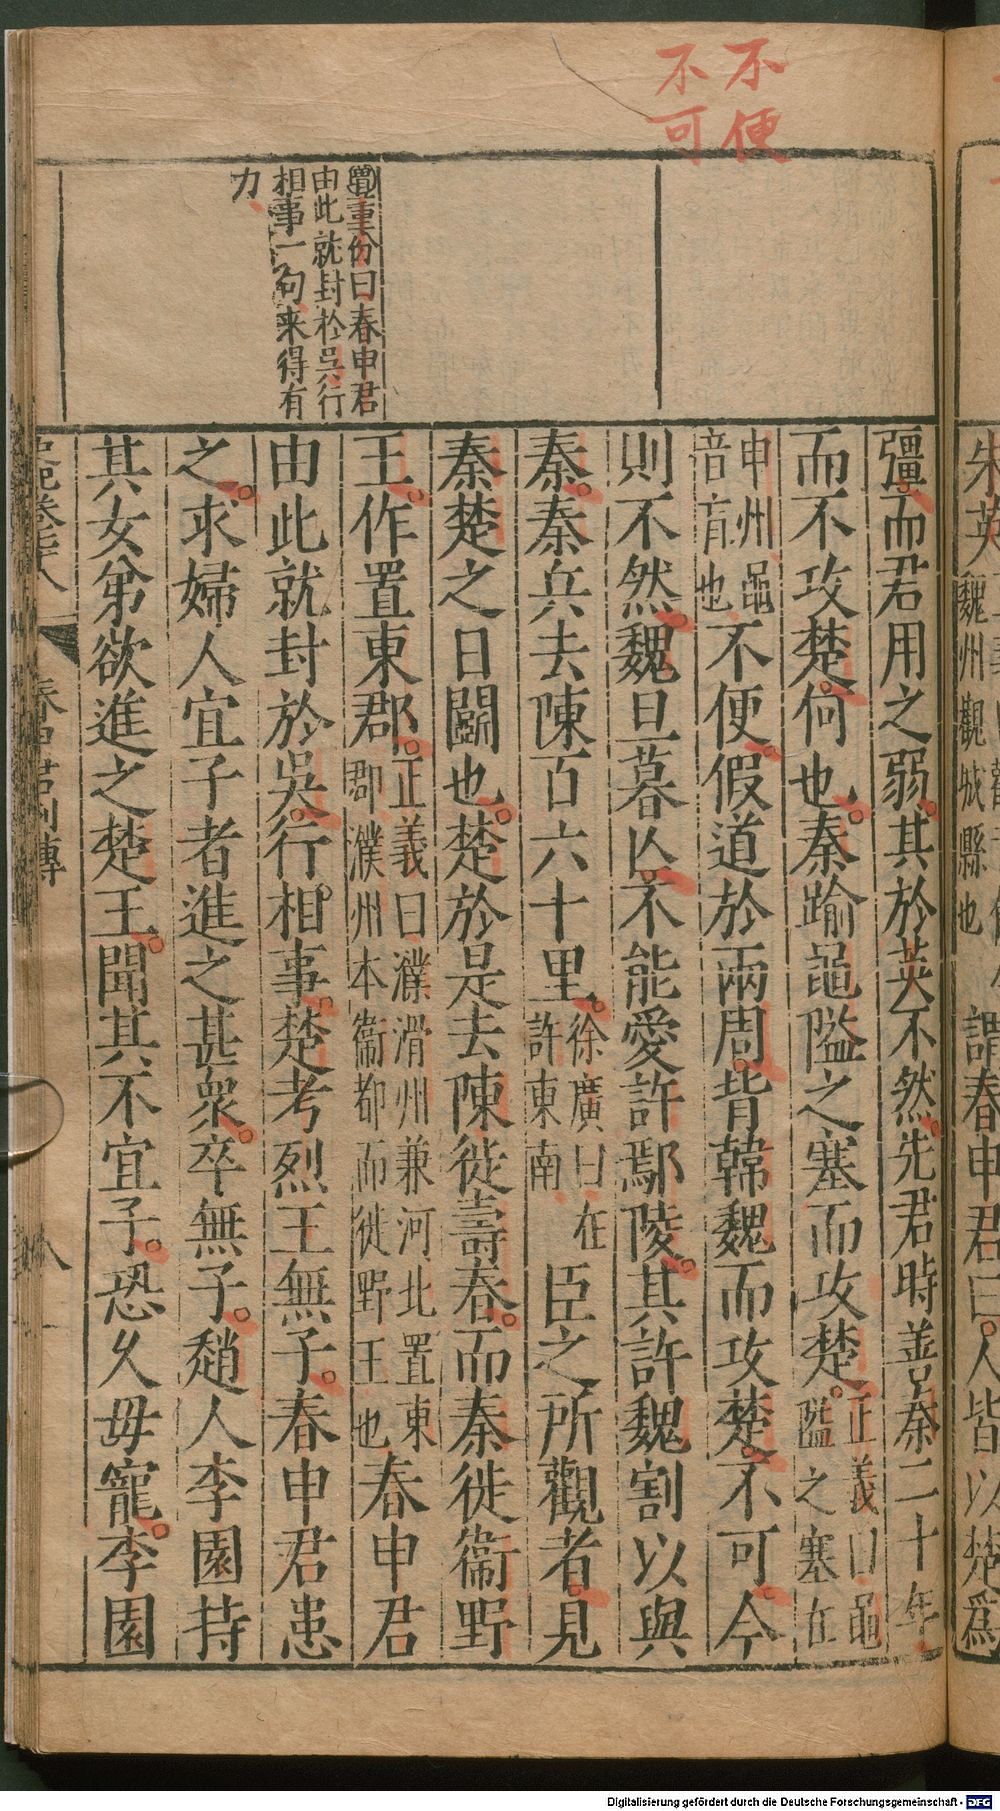 不便
不可
朱英魏州觀城縣也謂春申君曰人皆以楚爲
彊而君用之弱其於英不然先君時善秦二十年
而不攻楚何也秦踰黽隘之塞而攻楚正義曰黽隘之塞在
申州黽音盲也不便假道於兩周背韓魏而攻楚不可今
則不然魏旦暮亾不能愛許鄢陵其許魏割以與
秦秦兵去陳百六十里徐廣曰在許東南臣之所觀者見
秦楚之日鬭也楚於是去陳徙壽春而秦徙衞野
王作置東郡正義曰濮滑州兼河北置東郡濮州本衞都而徙野王也春申君
由此就封於吳行相事楚考烈王無子春申君患
之求婦人宜子者進之甚衆卒無子趙人李園持
其女弟欲進之楚王聞其不宜子恐久毋寵李園
董份曰春申君
由此就封於吳行
相事一句来得有
力
史記卷七十八 春申君列傳 八
Digitalisierung gefördert durch die Deutsche Forschungsgemeinschaft - DFG